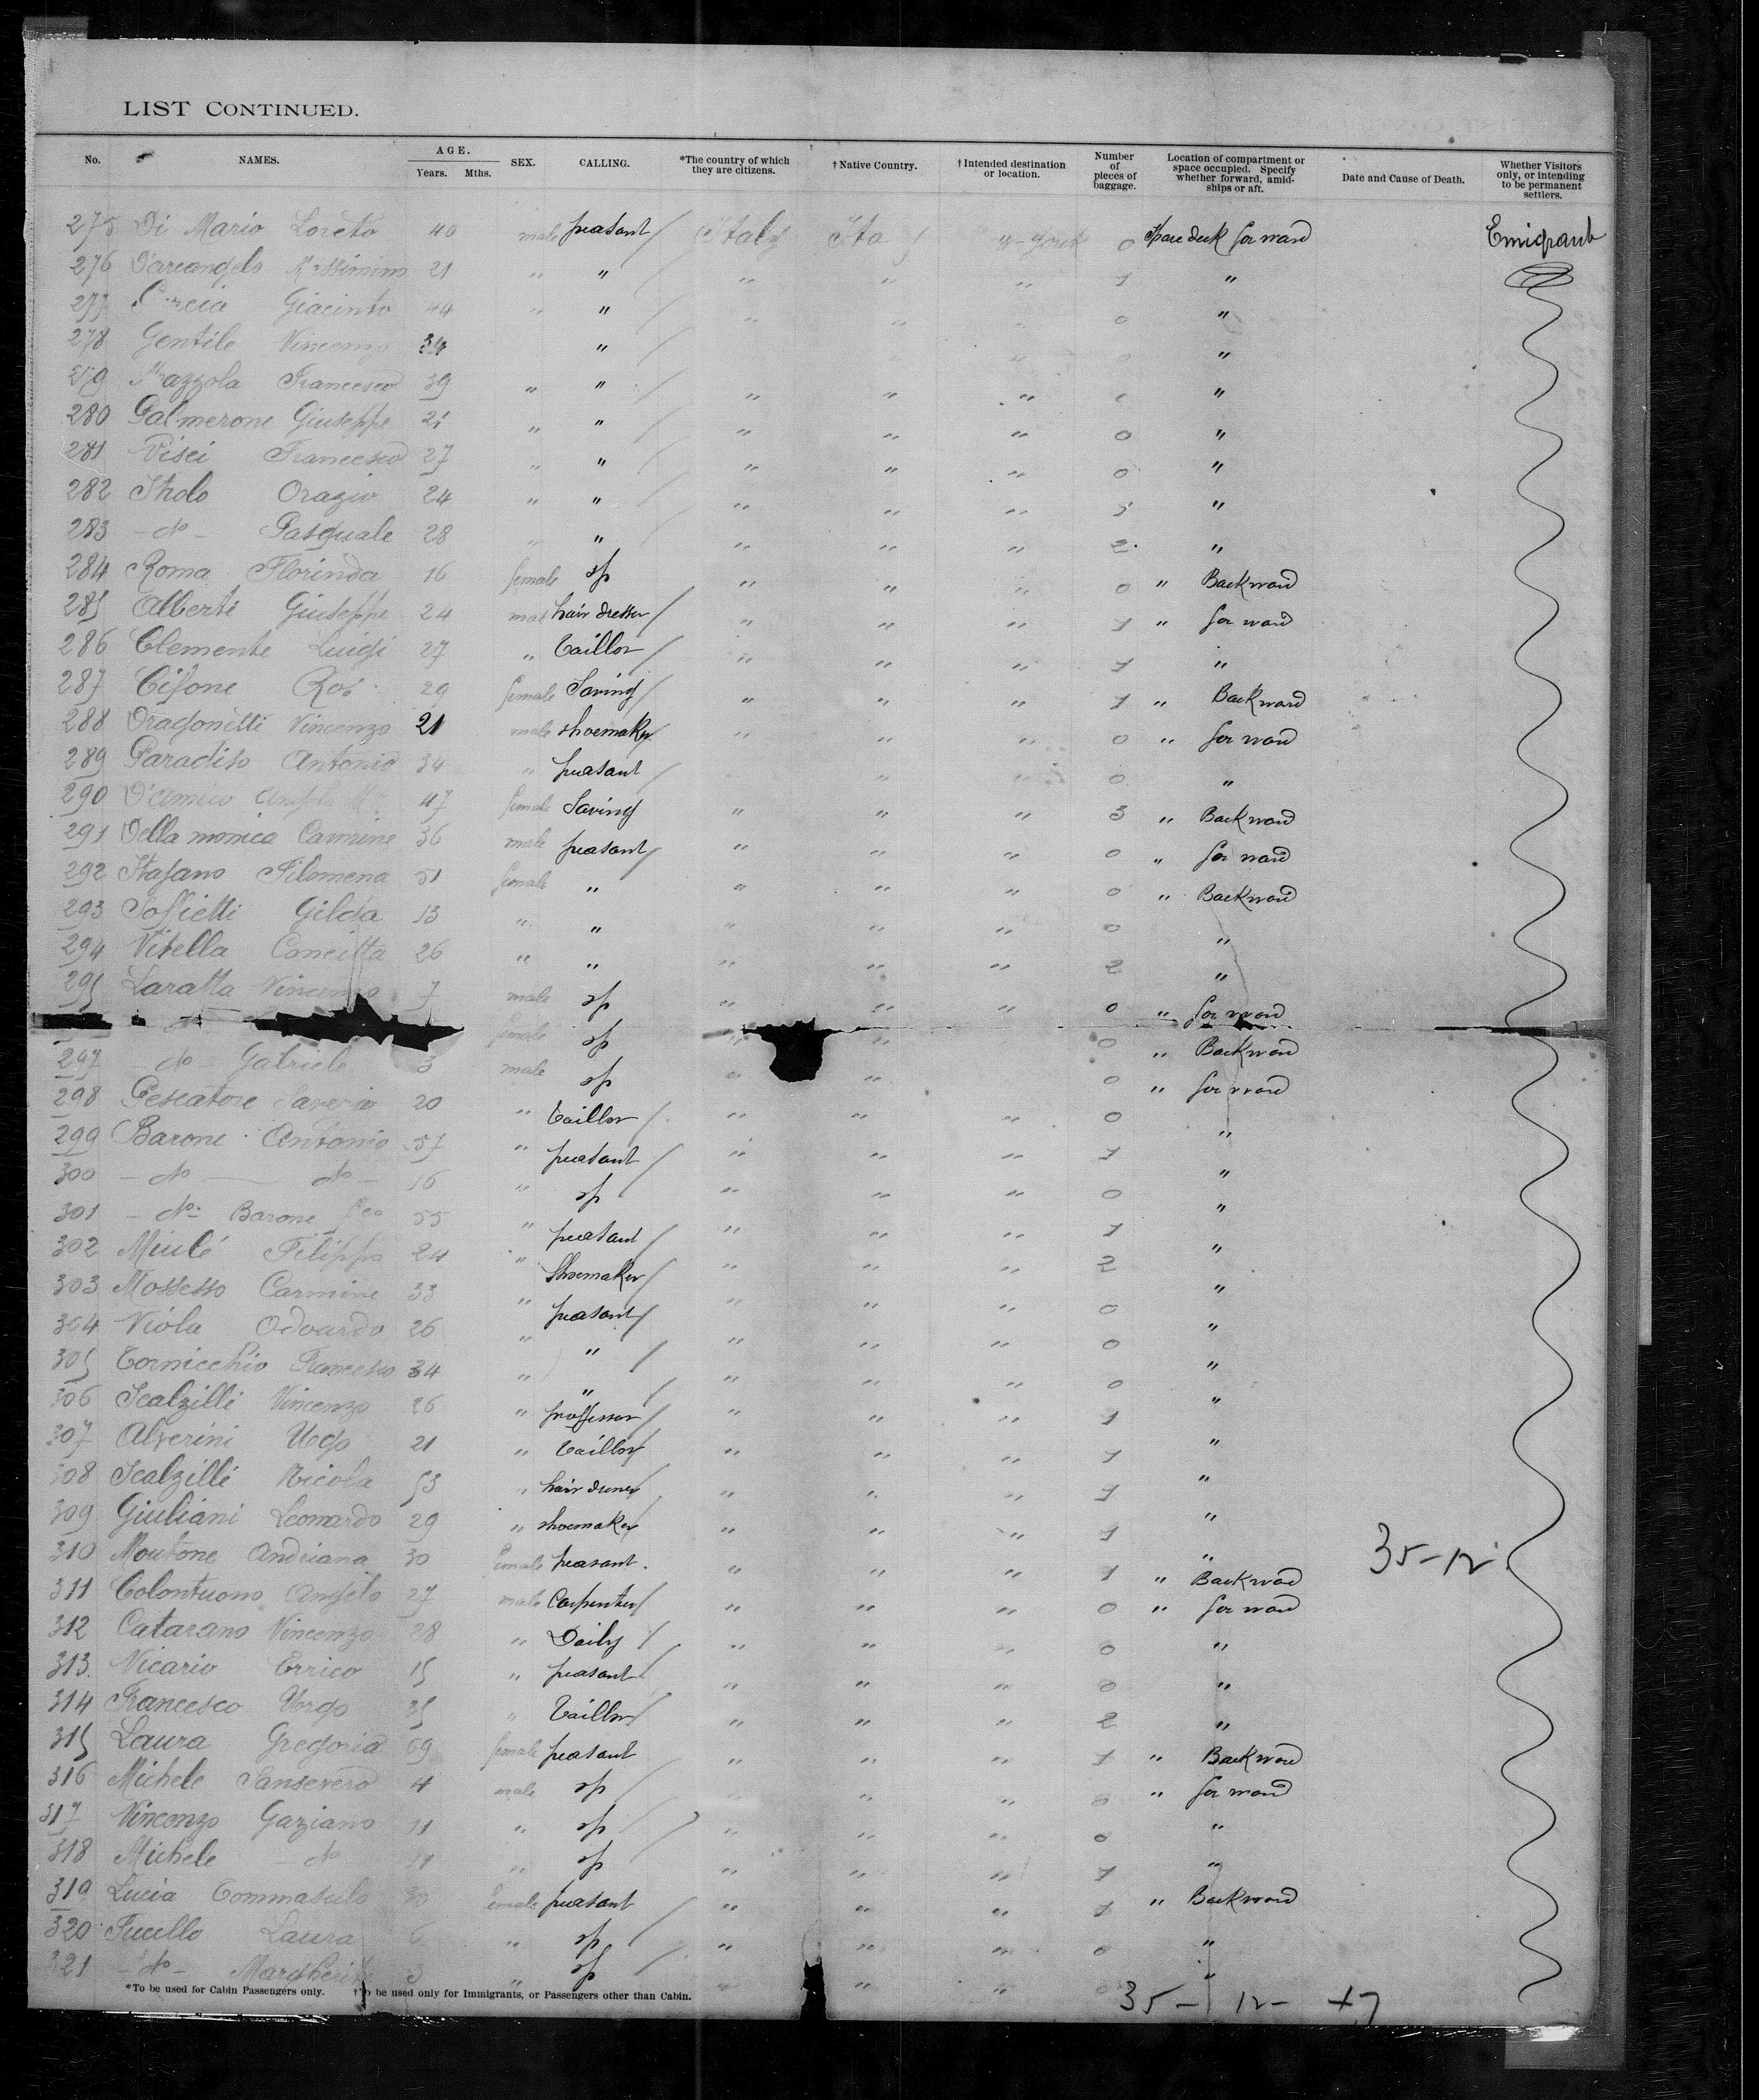 LIST CONTINUED.
No. NAMES. AGE. Years. Mths. SEX. CALLING. *The country of which they are citizens. †Native Country. †Intended destination or location. Number of pieces of baggage. Location of compartment or space occupied. Specify whether forward, amidships or aft. Date and Cause of Death. Whether Visitors only, or intending to be permanent settlers.
275 Di Mario Loreto 40 male peasant Italy Ita 0 Spare deck for ward Emigrant
276 Darcangelo Massimino 21 " " " " " 1 "
277 Giacinto 44 " " " " " 0 "
278 Gentile Vincenzo 34 " " 0 "
279 Mazzola Francesco 39 " " " " " "
280 Palmerone Giuseppe 21 " " " " " 0 "
281 Visci Francesco 27 " " " " " 0 "
282 Stolo Orazio 24 " " " " " "
283 - do - Pasquale 28 " " " " " 2 "
284 Roma Florinda 16 female sp " " " 0 " Backward
285 Alberti Giuseppe 24 mal hair dresser " " " 1 " for ward
286 Clemente Luigi 27 " taillor " " " 1 "
287 Cifone 29 female Saving " " " 1 " Backward
288 Dragonetti Vincenzo 21 male shoemaker " " " 0 " for ward
289 Paradiso Antonio 34 " peasant " " 0 "
290 D'amico 47 female Saving " " " 3 " Backward
291 Della monica Carmine 36 male peasant " " " 0 " for ward
292 Stafano Filomena 51 female " " " " 0 " Backward
293 Soffietti Gilda 13 " " " " " 0 "
294 Vitella 26 " " " " " 2 "
295 Laratta Vincenzo 7 male sp " " " 0 " for ward
female sp " " 0 " Backward
297 - do - Gabriele 3 male sp " " 0 " for ward
298 Pescatore Saverio 20 " taillor " " " 0 "
299 Barone Antonio 57 " peasant " " " 1 "
300 - do - do - 16 " sp " " " 0 "
301 - do - Barone 55 " peasant " " " 1 "
302 Miulé Filippo 24 " Shoemaker " " " 2 "
303 Mossesso Carmine 33 " peasant " " " 0 "
304 Viola Odoardo 26 " " " " " 0 "
305 Cornicchio Francesco 34 " " " " " 0 "
306 Scalzilli Vincenzo 26 " proffessor " " " 1 "
307 Alverini Ugo 21 " Taillor " " " 1 "
308 Scalzilli Nicola 53 " hair dresser " " " 1 "
309 Giuliani Leonardo 29 " shoemaker " " " 1 "
310 Moutone Andriana 30 female peasant " " " 1 " Backward 35-12
311 Colontuono Angelo 27 male Carpenter " " " 0 " for ward
312 Catarano Vincenzo 28 " Daily " " " 0 "
313. Vicario Errico 15 " peasant " " " 0 "
314 Francesco 35 " Taillor " " " 2 "
315 Laura Gregoria 69 female peasant " " " 1 " Backward
316 Michele Sansevero 4 male sp " " 0 " for ward
317 Vincenzo Gaziano 11 " sp " " " 0 "
318 Michele - do 11 " sp " " " 1 "
319 Lucia Tommasulo 30 female peasant " " " 1 " Backward
320 Fucillo Laura 6 " sp " " " 0 "
321 - do - Margherita 3 " sp " " " 0 "
*To be used for Cabin Passengers only. †To be used only for Immigrants, or Passengers other than Cabin.
35 - 12 - +7